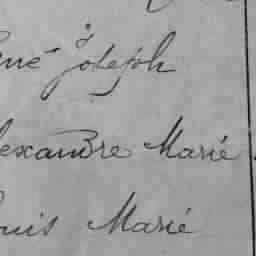 né Joseph
lexandre Marié
ouis Marié